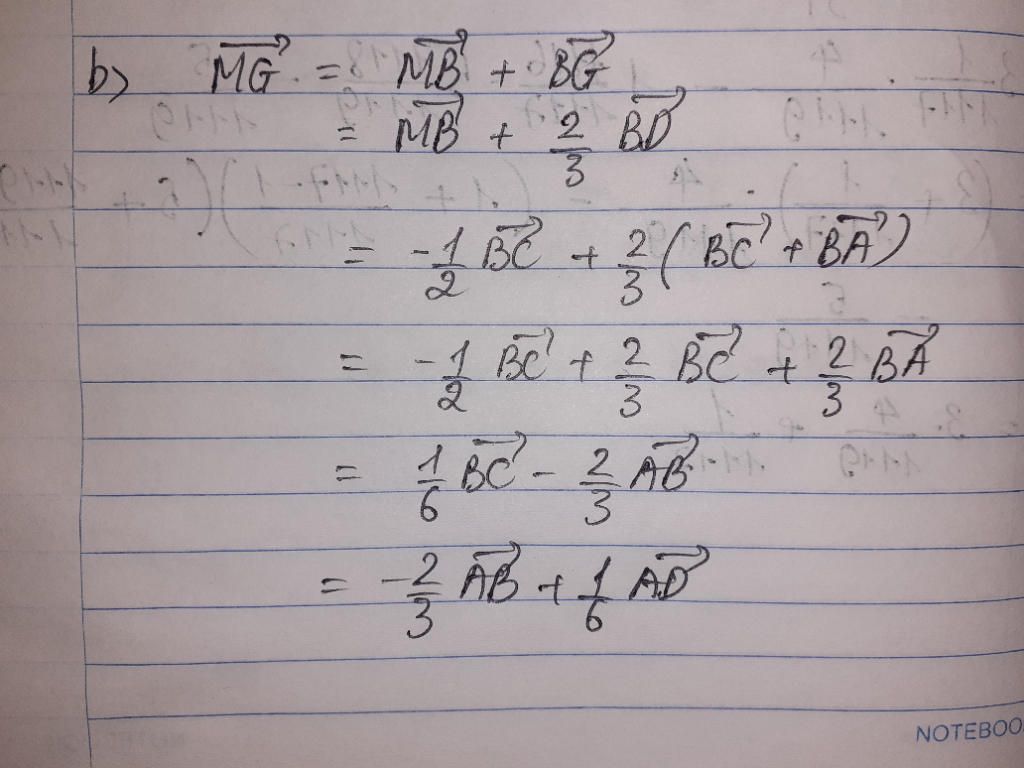 b) \overrightarrow{MG} = \overrightarrow{MB} + \overrightarrow{BG}
= \overrightarrow{MB} + \frac{2}{3} \overrightarrow{BD}
= -\frac{1}{2} \overrightarrow{BC} + \frac{2}{3} ( \overrightarrow{BC} + \overrightarrow{BA} )
= -\frac{1}{2} \overrightarrow{BC} + \frac{2}{3} \overrightarrow{BC} + \frac{2}{3} \overrightarrow{BA}
= \frac{1}{6} \overrightarrow{BC} - \frac{2}{3} \overrightarrow{AB}
= -\frac{2}{3} \overrightarrow{AB} + \frac{1}{6} \overrightarrow{AD}